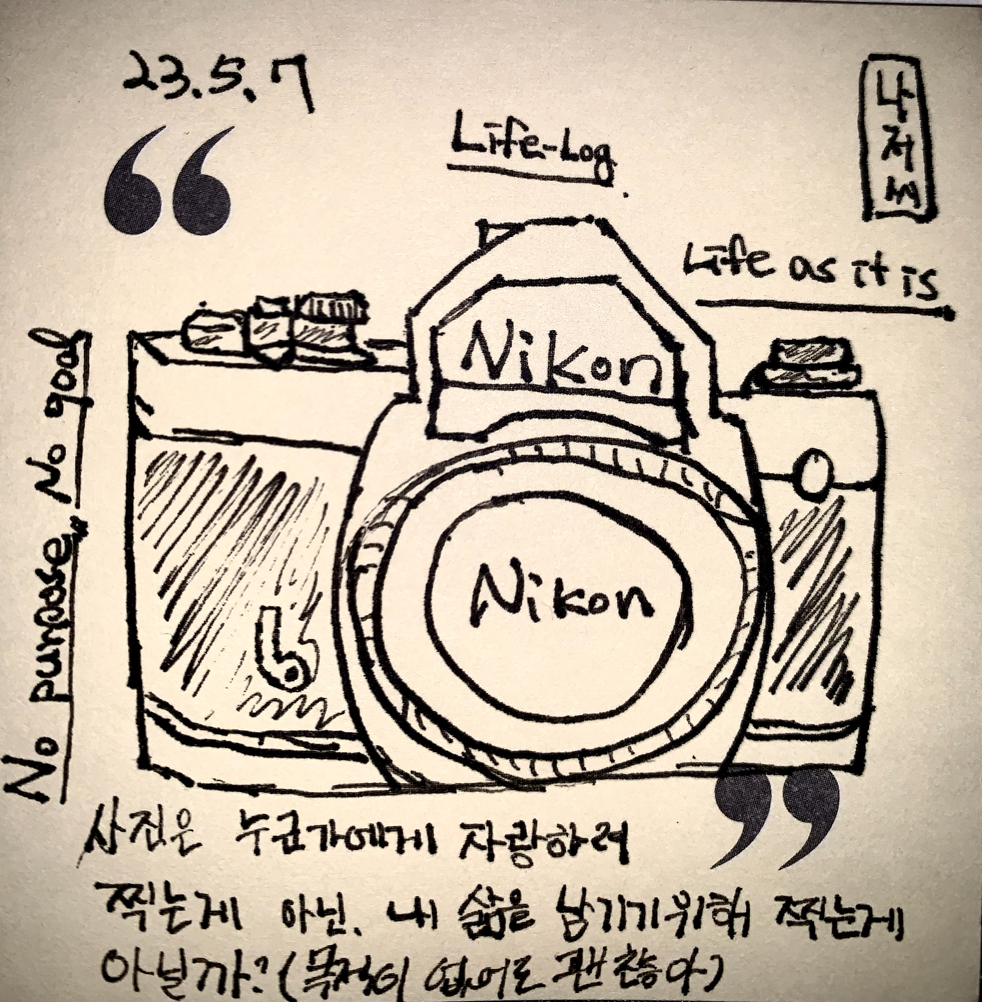 23.5.7
Life-Log.
나
저
씨
Life as it is
Nikon
Nikon
No purpose, No goal
사진은 누군가에게 자랑하려
찍는게 아닌, 내 삶을 남기기위해 찍는게
아닐까? (목적이 없어도 괜찮아)